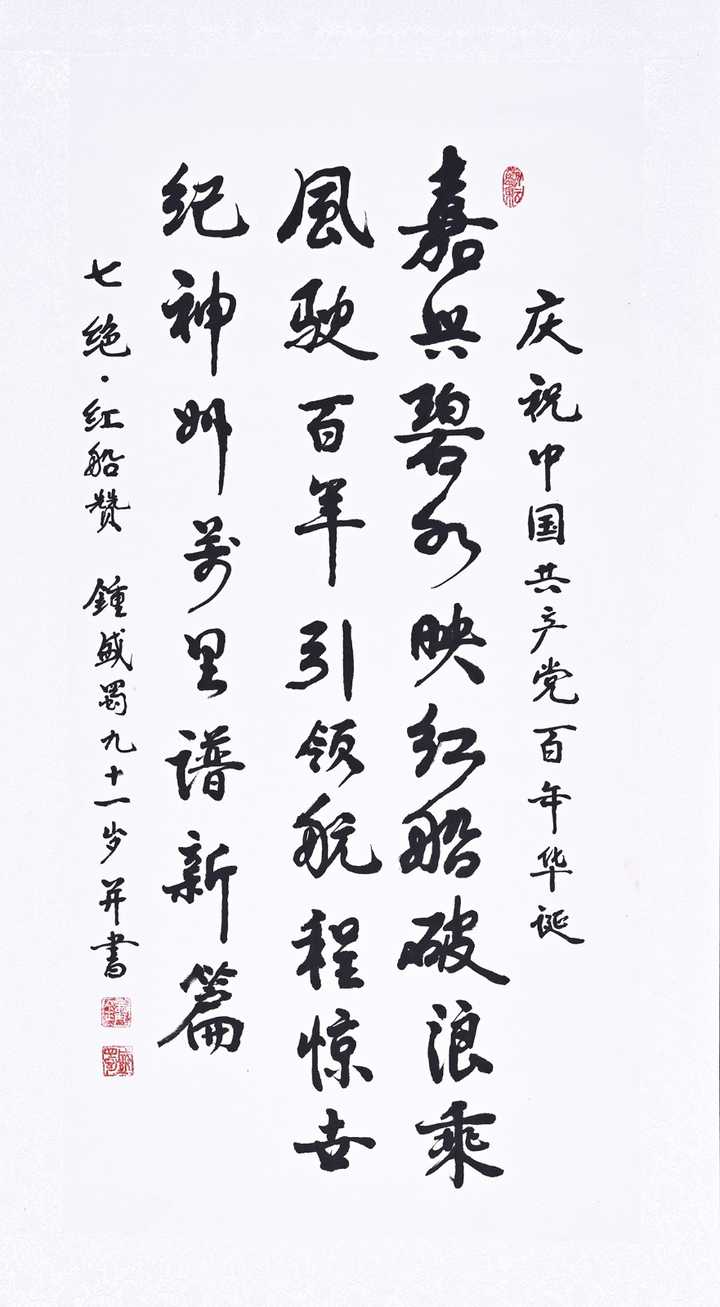 庆祝中国共产党百年华诞
嘉兴碧水映红船破浪乘
風驶百年引领航程惊世
纪神州万里谱新篇
七绝·红船赞 鍾盛蜀九十一岁并書